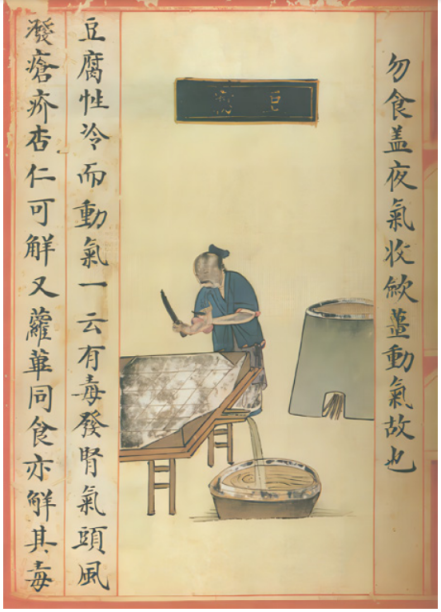 勿食盖夜氣收斂薑動氣故也
豆腐
豆腐性冷而動氣一云有毒發腎氣頭風
瘡疥杏仁可解又蘿蔔同食亦解其毒